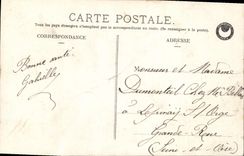 CARTE POSTALE
Tous les pays étrangers n'acceptent pas la correspondance au recto. (Se renseigner à la poste).
CORRESPONDANCE
ADRESSE
Bonne santé
Gabrielle
Monsieur et Madame
Dumonteil Chez Mr
à
Lepinay S/ Orge
Grande Rue
Seine et Oise